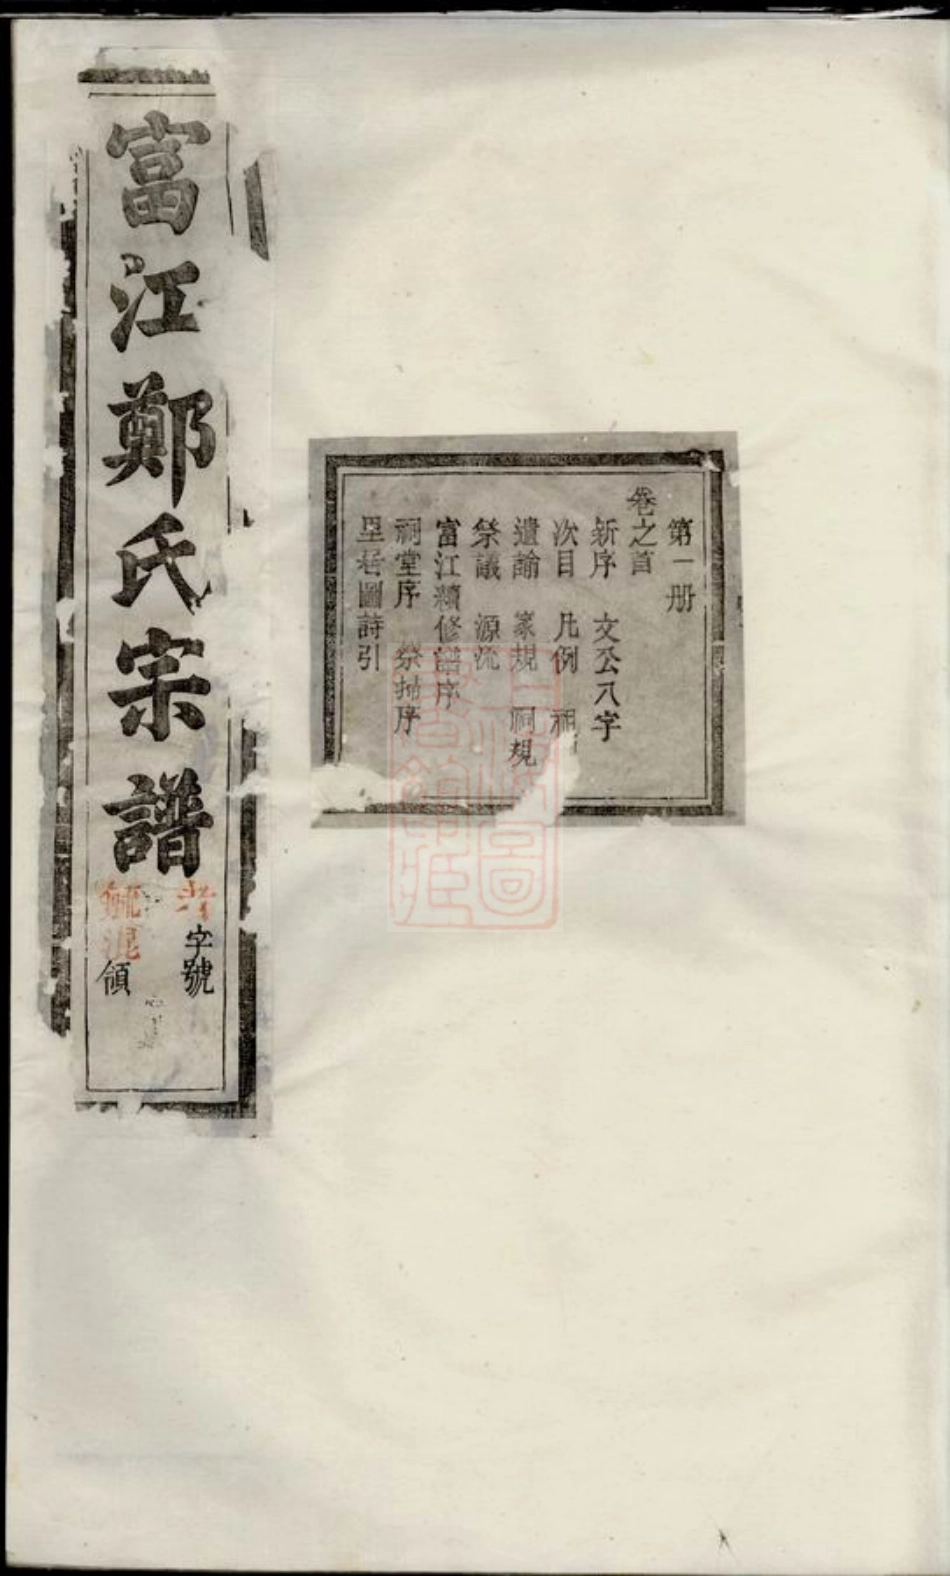 富江鄭氏宗譜
字號
領
第一册
卷之首
新序 文公八字
次目 凡例
遺諭 家規 祠規
祭議 源流
富江續修譜序
祠堂序 祭掃序
里居圖詩引
上海圖書館藏